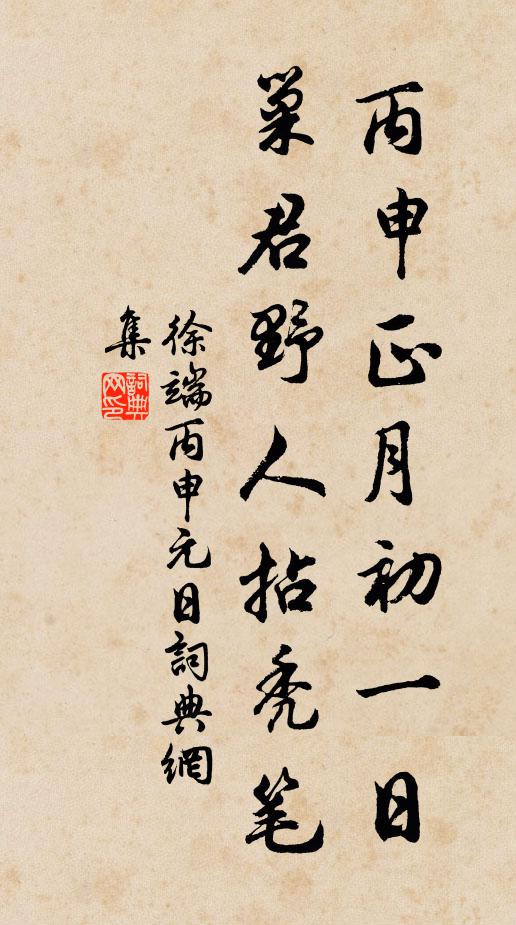 丙申正月初一日
巢君野人拈禿笔
徐端丙申元日詞典網
集
詞典
网印